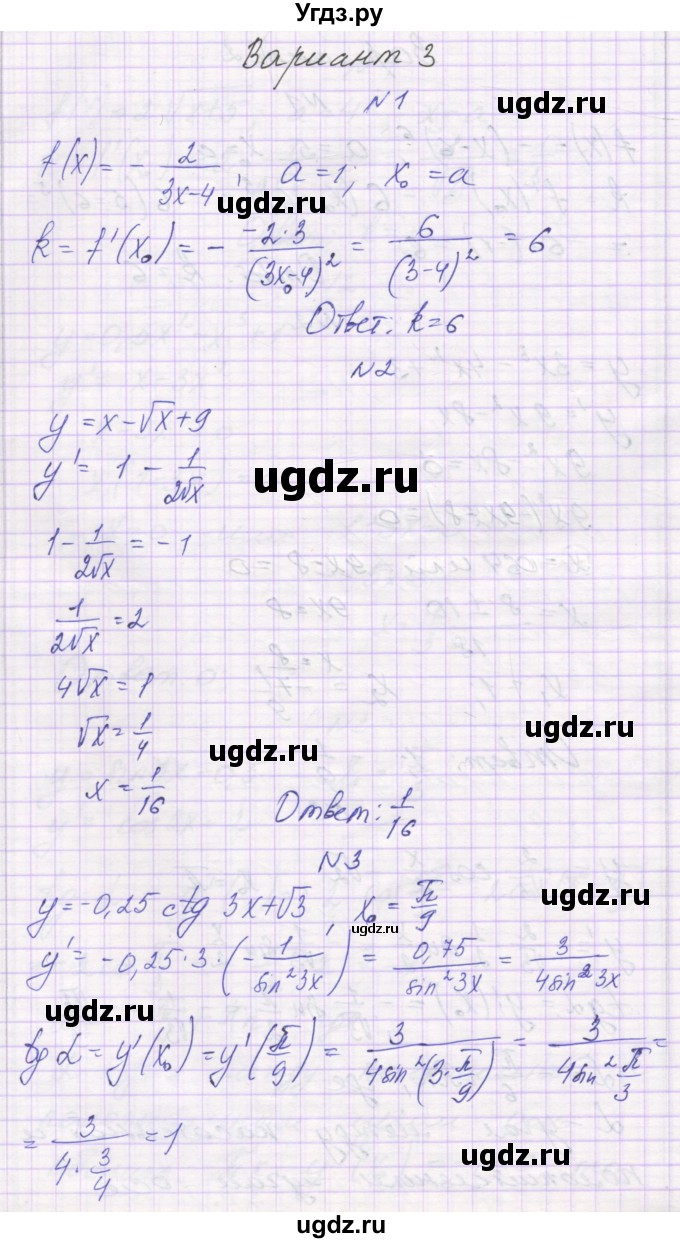 Угдз.ру
Вариант 3
N1
ugdz.ru
f(x) = - 2/(3x-4), a = 1; x₀ = a
ugdz.ru
k = f'(x₀) = - (-2·3)/(3x₀-4)² = 6/(3-4)² = 6
Ответ: k=6
N2
y = x - √x + 9
y' = 1 - 1/(2√x)
ugdz.ru
1 - 1/(2√x) = -1
1/(2√x) = 2
4√x = 1
ugdz.ru
√x = 1/4
ugdz.ru
x = 1/16
Ответ: 1/16
N3
y = -0,25 ctg 3x + √3, x₀ = π/9
ugdz.ru
ugdz.ru
y' = -0,25·3·(-1/(sin²3x)) = 0,75/(sin²3x) = 3/(4sin²3x)
ugdz.ru
tg α = y'(x₀) = y'(π/9) = 3/(4sin²(3·π/9)) = 3/(4sin² π/3) =
= 3/(4·3/4) = 1
ugdz.ru
ugdz.ru